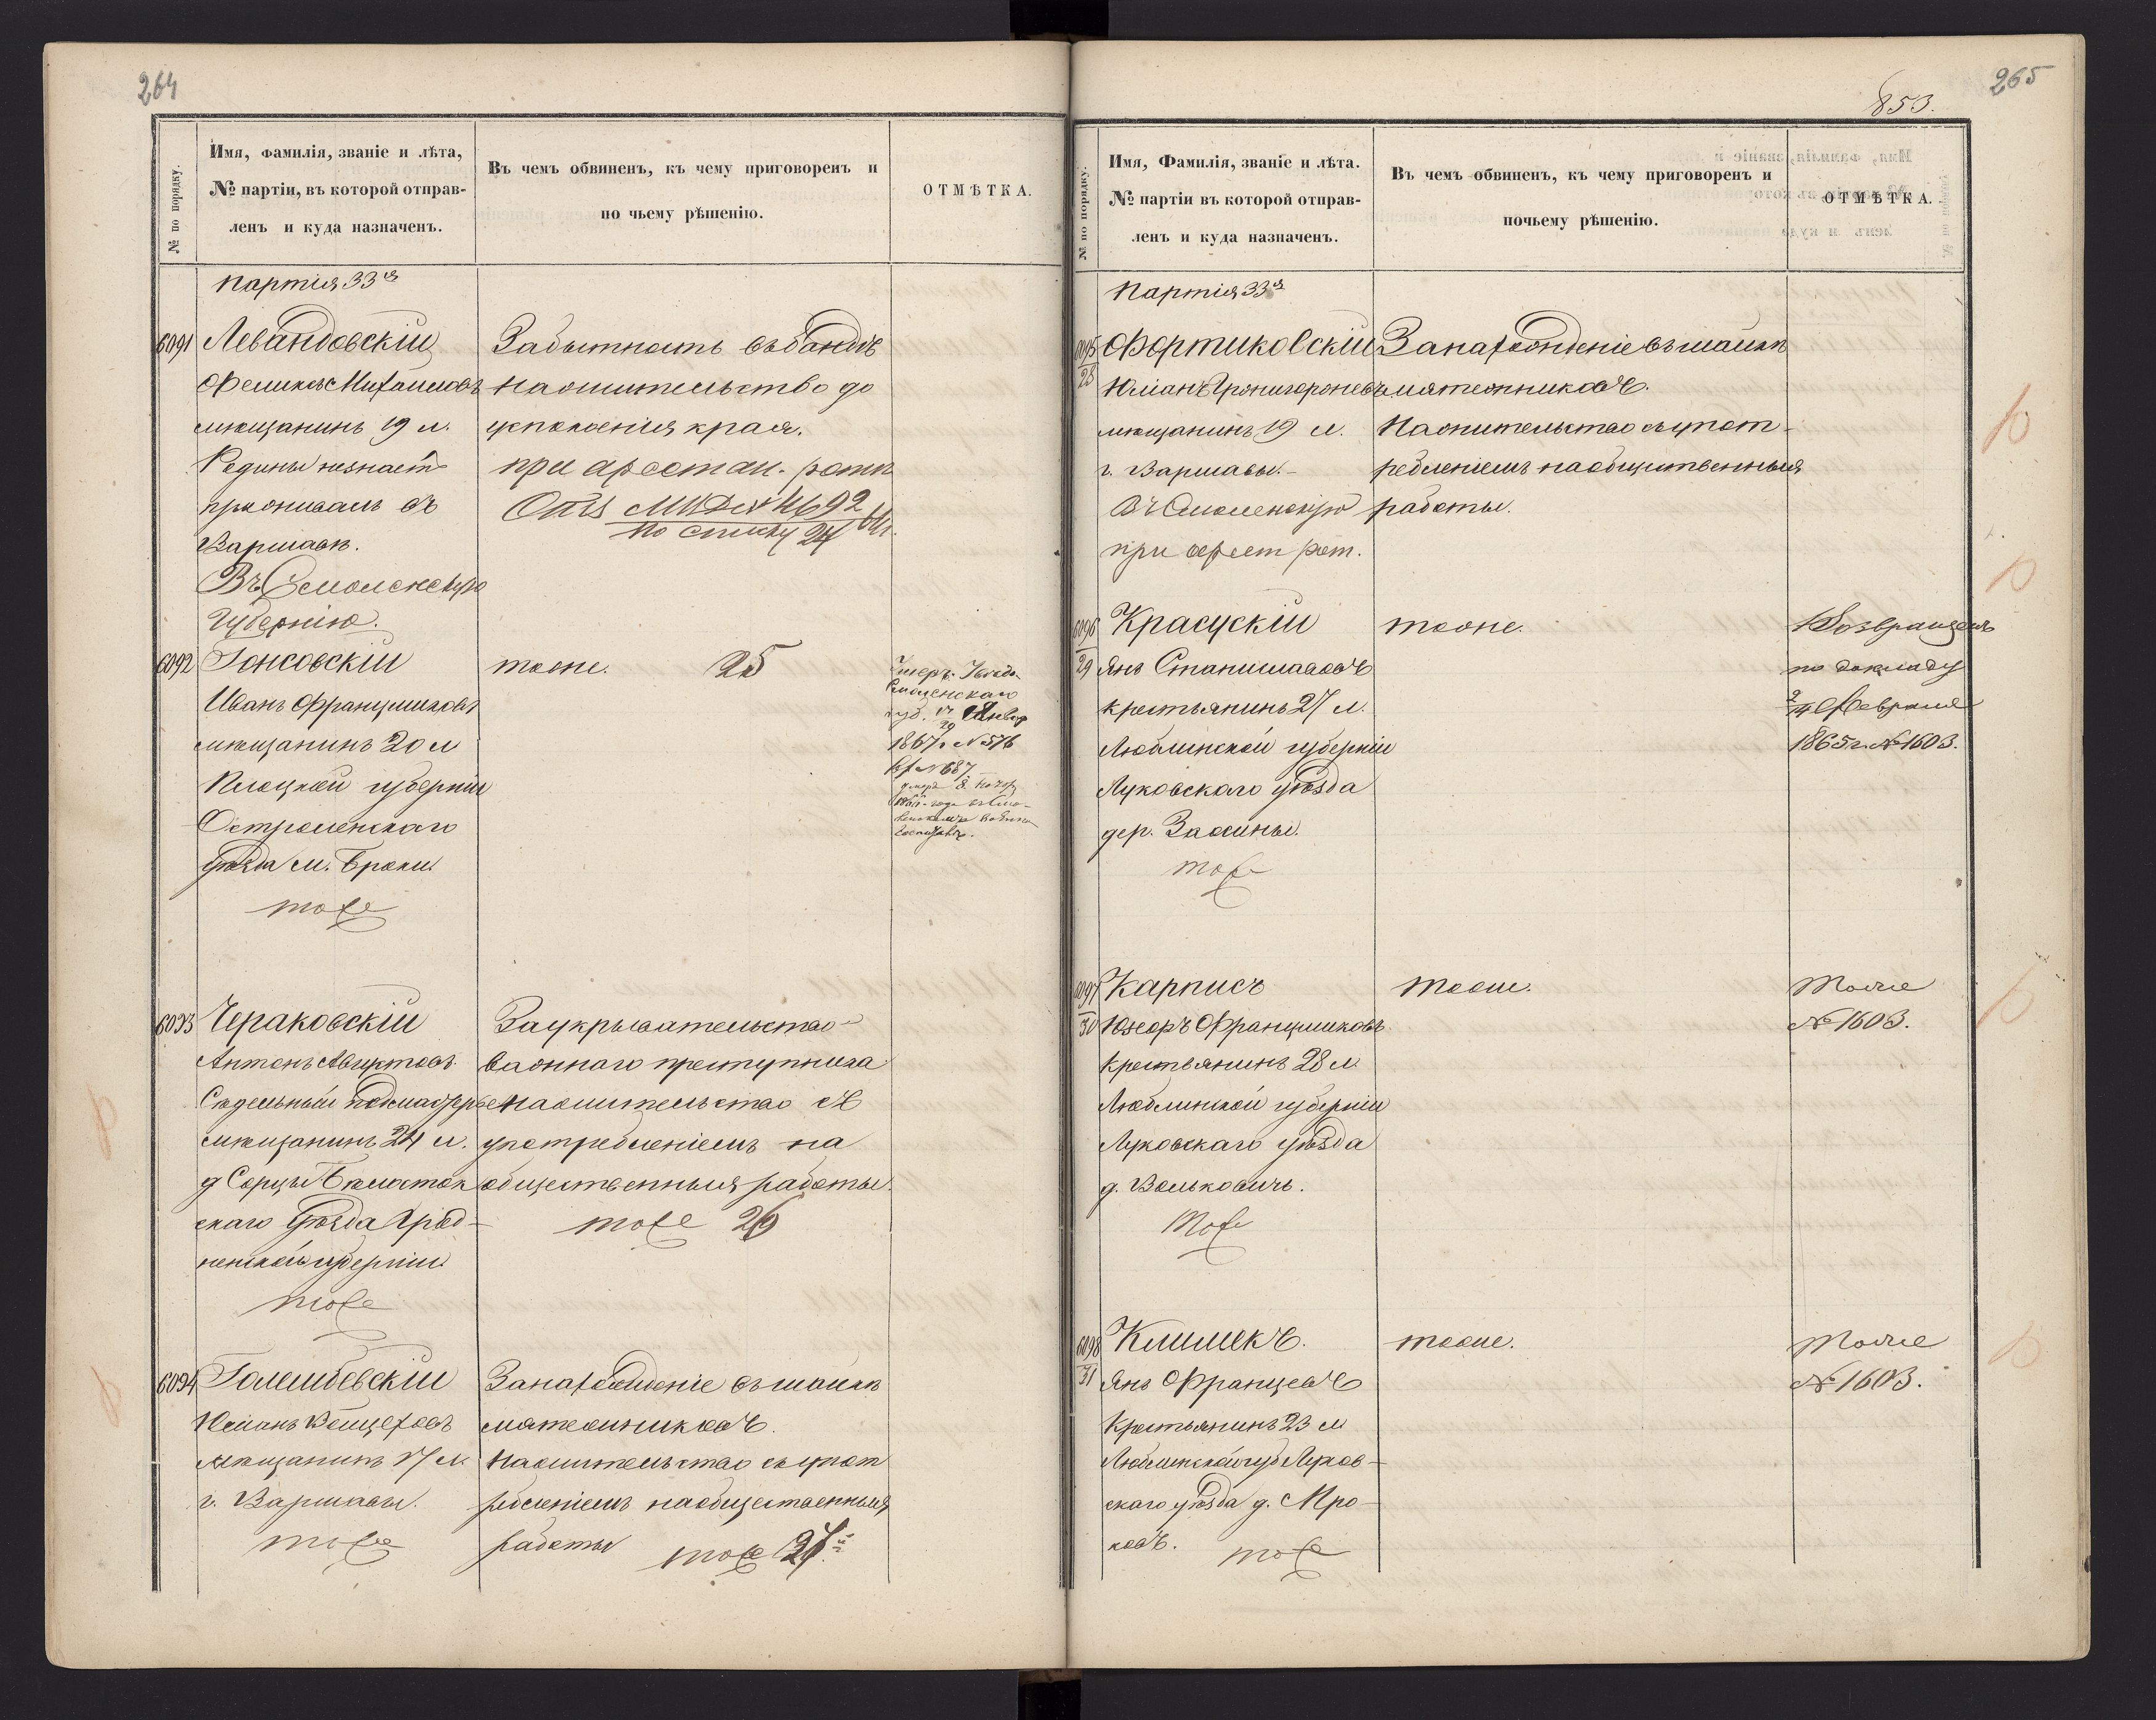 264
№ по порядку.
Имя, Фамилія, званіе и лѣта,
№ партіи, въ которой отправ-
ленъ и куда назначенъ.
Въ чемъ обвиненъ, къ чему приговоренъ и
по чьему рѣшенію.
ОТМѢТКА.
партія 33я
6091
Левандовскій
Феликсъ Михайловъ
мѣщанинъ 19 л.
Родины незнаетъ
проживалъ въ
Варшавѣ.
Въ Смоленскую
Губернію.
За бытность въ бандѣ
на жительство до
успокоенія края.
при арестан. ротѣ
По списку 24
6092
Гонсовскій
Иванъ Францишковъ
мѣщанинъ 20 л
Плоцкой губерніи
Остроленскаго
уѣзда м. Броки.
тоже
тоже. 25
Смоленскаго
губ. 17/29 Январ
1867 г № 576
6093
Чераковскій
Антонъ
Сѣдельный подмастерье
мѣщанинъ 24 л.
д Сорцы Бѣлосток
скаго уѣзда Грод-
ненской губерніи
тоже
За укрывательство
важнаго преступника
На жительство съ
употребленіемъ на
общественныя работы.
тоже 26
6094
Голембевскій
Юліанъ Войцеховъ
мѣщанинъ 17 л.
г. Варшавы.
тоже
За нахожденіе въ шайкѣ
мятежниковъ.
На жительство съ упот
ребленіемъ на общественныя
работы тоже 27
265
853.
№ по порядку.
Имя, Фамилія, званіе и лѣта.
№ партіи въ которой отправ-
ленъ и куда назначенъ.
Въ чемъ обвиненъ, къ чему приговоренъ и
почьему рѣшенію.
ОТМѢТКА.
Партія 33я
6095
28
Фортиковскій
Юліанъ
мѣщанинъ 19 л.
г. Варшавы.
Въ Смоленскую
при арест рот.
За нахожденіе въ шайкѣ
мятежниковъ.
На жительство съ упот-
ребленіемъ на общественныя
работы.
6096
29
Красускій
Янъ Станиславовъ
крестьянинъ 27 л.
Люблинской губерніи
Луковскаго уѣзда
дер.
тоже
тоже.
Возвращенъ
по докладу
2/14 Февраля
1865 г. № 1603.
6097
30
Карписъ
Францишковъ
крестьянинъ 28 л.
Люблинской губерніи
Луковскаго уѣзда
д. Вольковичъ.
Тоже
тоже.
Тоже
№ 1603.
6098
31
Климекъ.
Янъ Францевъ
Крестьянинъ 23 л
Люблинской губ Луков-
скаго уѣзда д. Мро-
ковъ. тоже
тоже.
Тоже
№ 1603.